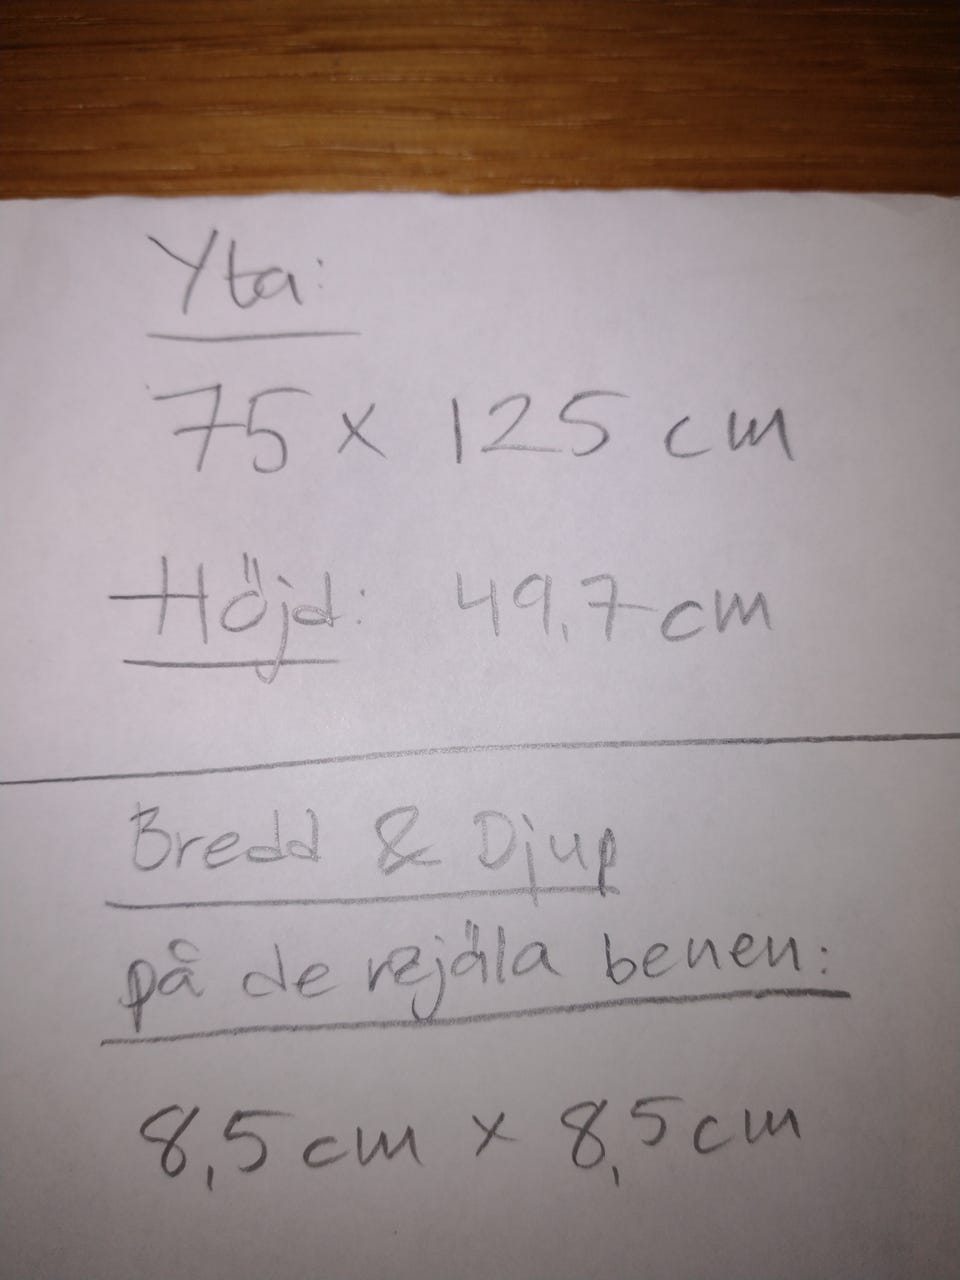 Yta:
75 x 125 cm
Höjd: 49,7 cm
Bredd & Djup
på de rejäla benen:
8,5 cm x 8,5 cm